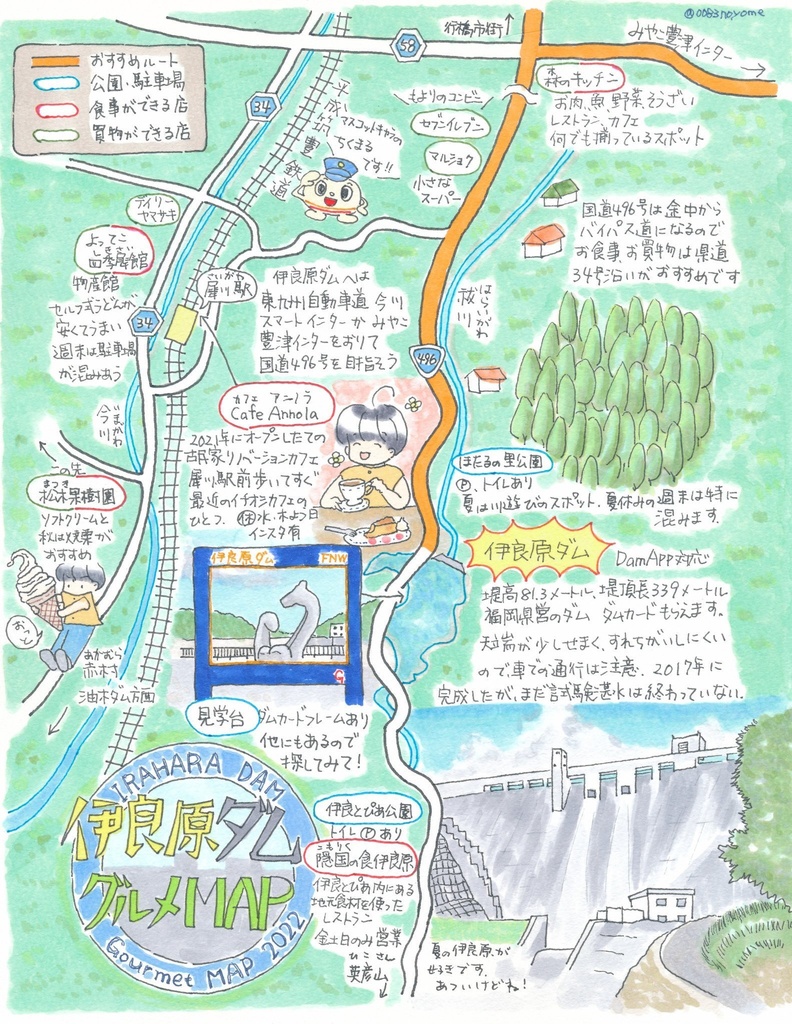 @0083noyome
おすすめルート
公園・駐車場
食事ができる店
買物ができる店
行橋市街
58
みやこ豊津インター
34
平成筑豊鉄道
マスコットキャラの
ちくまる
です!!
もよりのコンビニ
セブンイレブン
マルショク
小さな
スーパー
森のキッチン
お肉、魚、野菜、そうざい
レストラン、カフェ
何でも揃っているスポット
国道496号は途中から
バイパス道になるので
お食事お買物は県道
34号沿いがおすすめです
デイリー
ヤマサキ
よってこ
しきさい
四季犀館
物産館
セルフうどんが
安くてうまい
週末は駐車場
が混み合う
34
さいがわ
犀川駅
伊良原ダムへは
東九州自動車道 今川
スマートインターか みやこ
豊津インターをおりて
国道496号を目指そう
はらいがわ
祓川
496
いまがわ
今川
カフェ アンノラ
Cafe Annola
2021年にオープンしたての
古民家リノベーションカフェ
犀川駅前歩いてすぐ
最近のイチオシカフェの
ひとつ。㊡水・木よう日
インスタ有
この先
まつき
松木果樹園
ソフトクリームと
秋は焼栗が
おすすめ
おっと
あかむら
赤村
油木ダム方面
ほたるの里公園
Ⓟ、トイレあり
夏は川遊びのスポット、夏休みの週末は特に
混みます。
伊良原ダム
DamApp対応
堤高81.3メートル、堤頂長339メートル
福岡県営のダム ダムカードもらえます。
天端が少しせまく、すれちがいしにくい
ので車での通行は注意、2017年に
完成したが、まだ試験湛水は終わっていない。
伊良原ダム
FNW
見学台
ダムカードフレームあり
他にもあるので
探してみて!
IRAHARA DAM
伊良原ダム
グルメMAP
Gourmet MAP 2022
伊良とぴあ公園
トイレⓅあり
こもりく
隠国の食伊良原
伊良とぴあ内にある
地元食材を使った
レストラン
金土日のみ営業
ひこさん
英彦山
夏の伊良原が
好きです。
あついけどね!